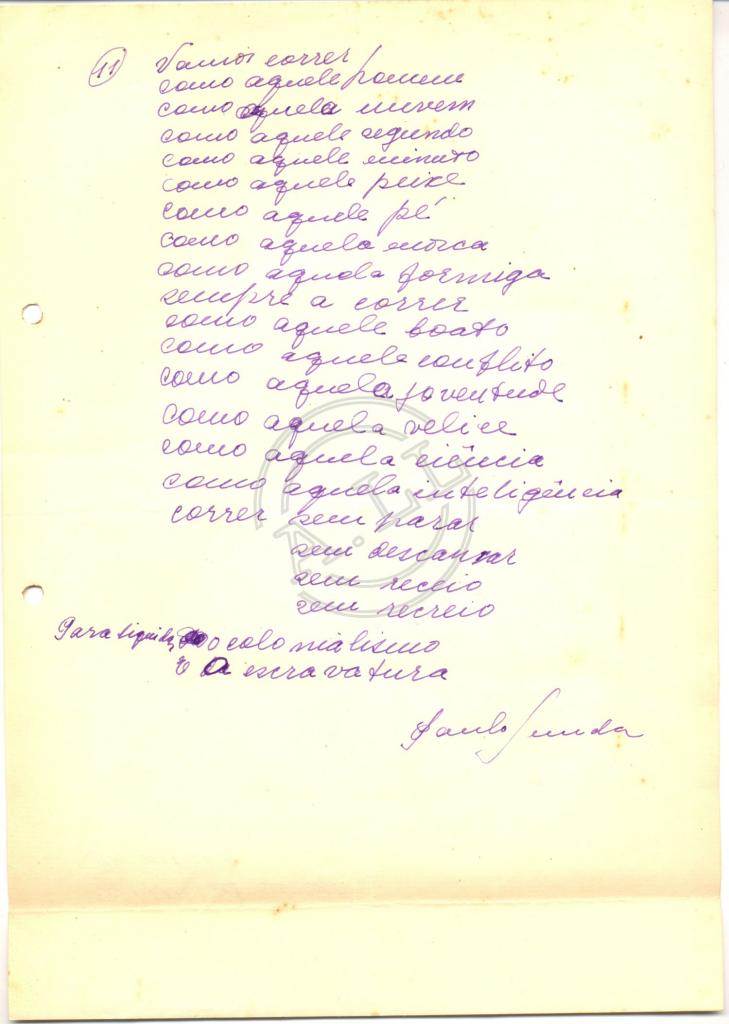 11 Vamos correr
como aquele homem
como aquela nuvem
como aquele segundo
como aquele minuto
como aquele peixe
como aquele pé
como aquela mosca
como aquela formiga
sempre a correr
como aquele boato
como aquele conflito
como aquela joventude
como aquela velice
como aquela ciência
como aquela inteligência
correr sem parar
sem descansar
sem receio
sem recreio
Para liquidar o colonialismo
e a escravatura